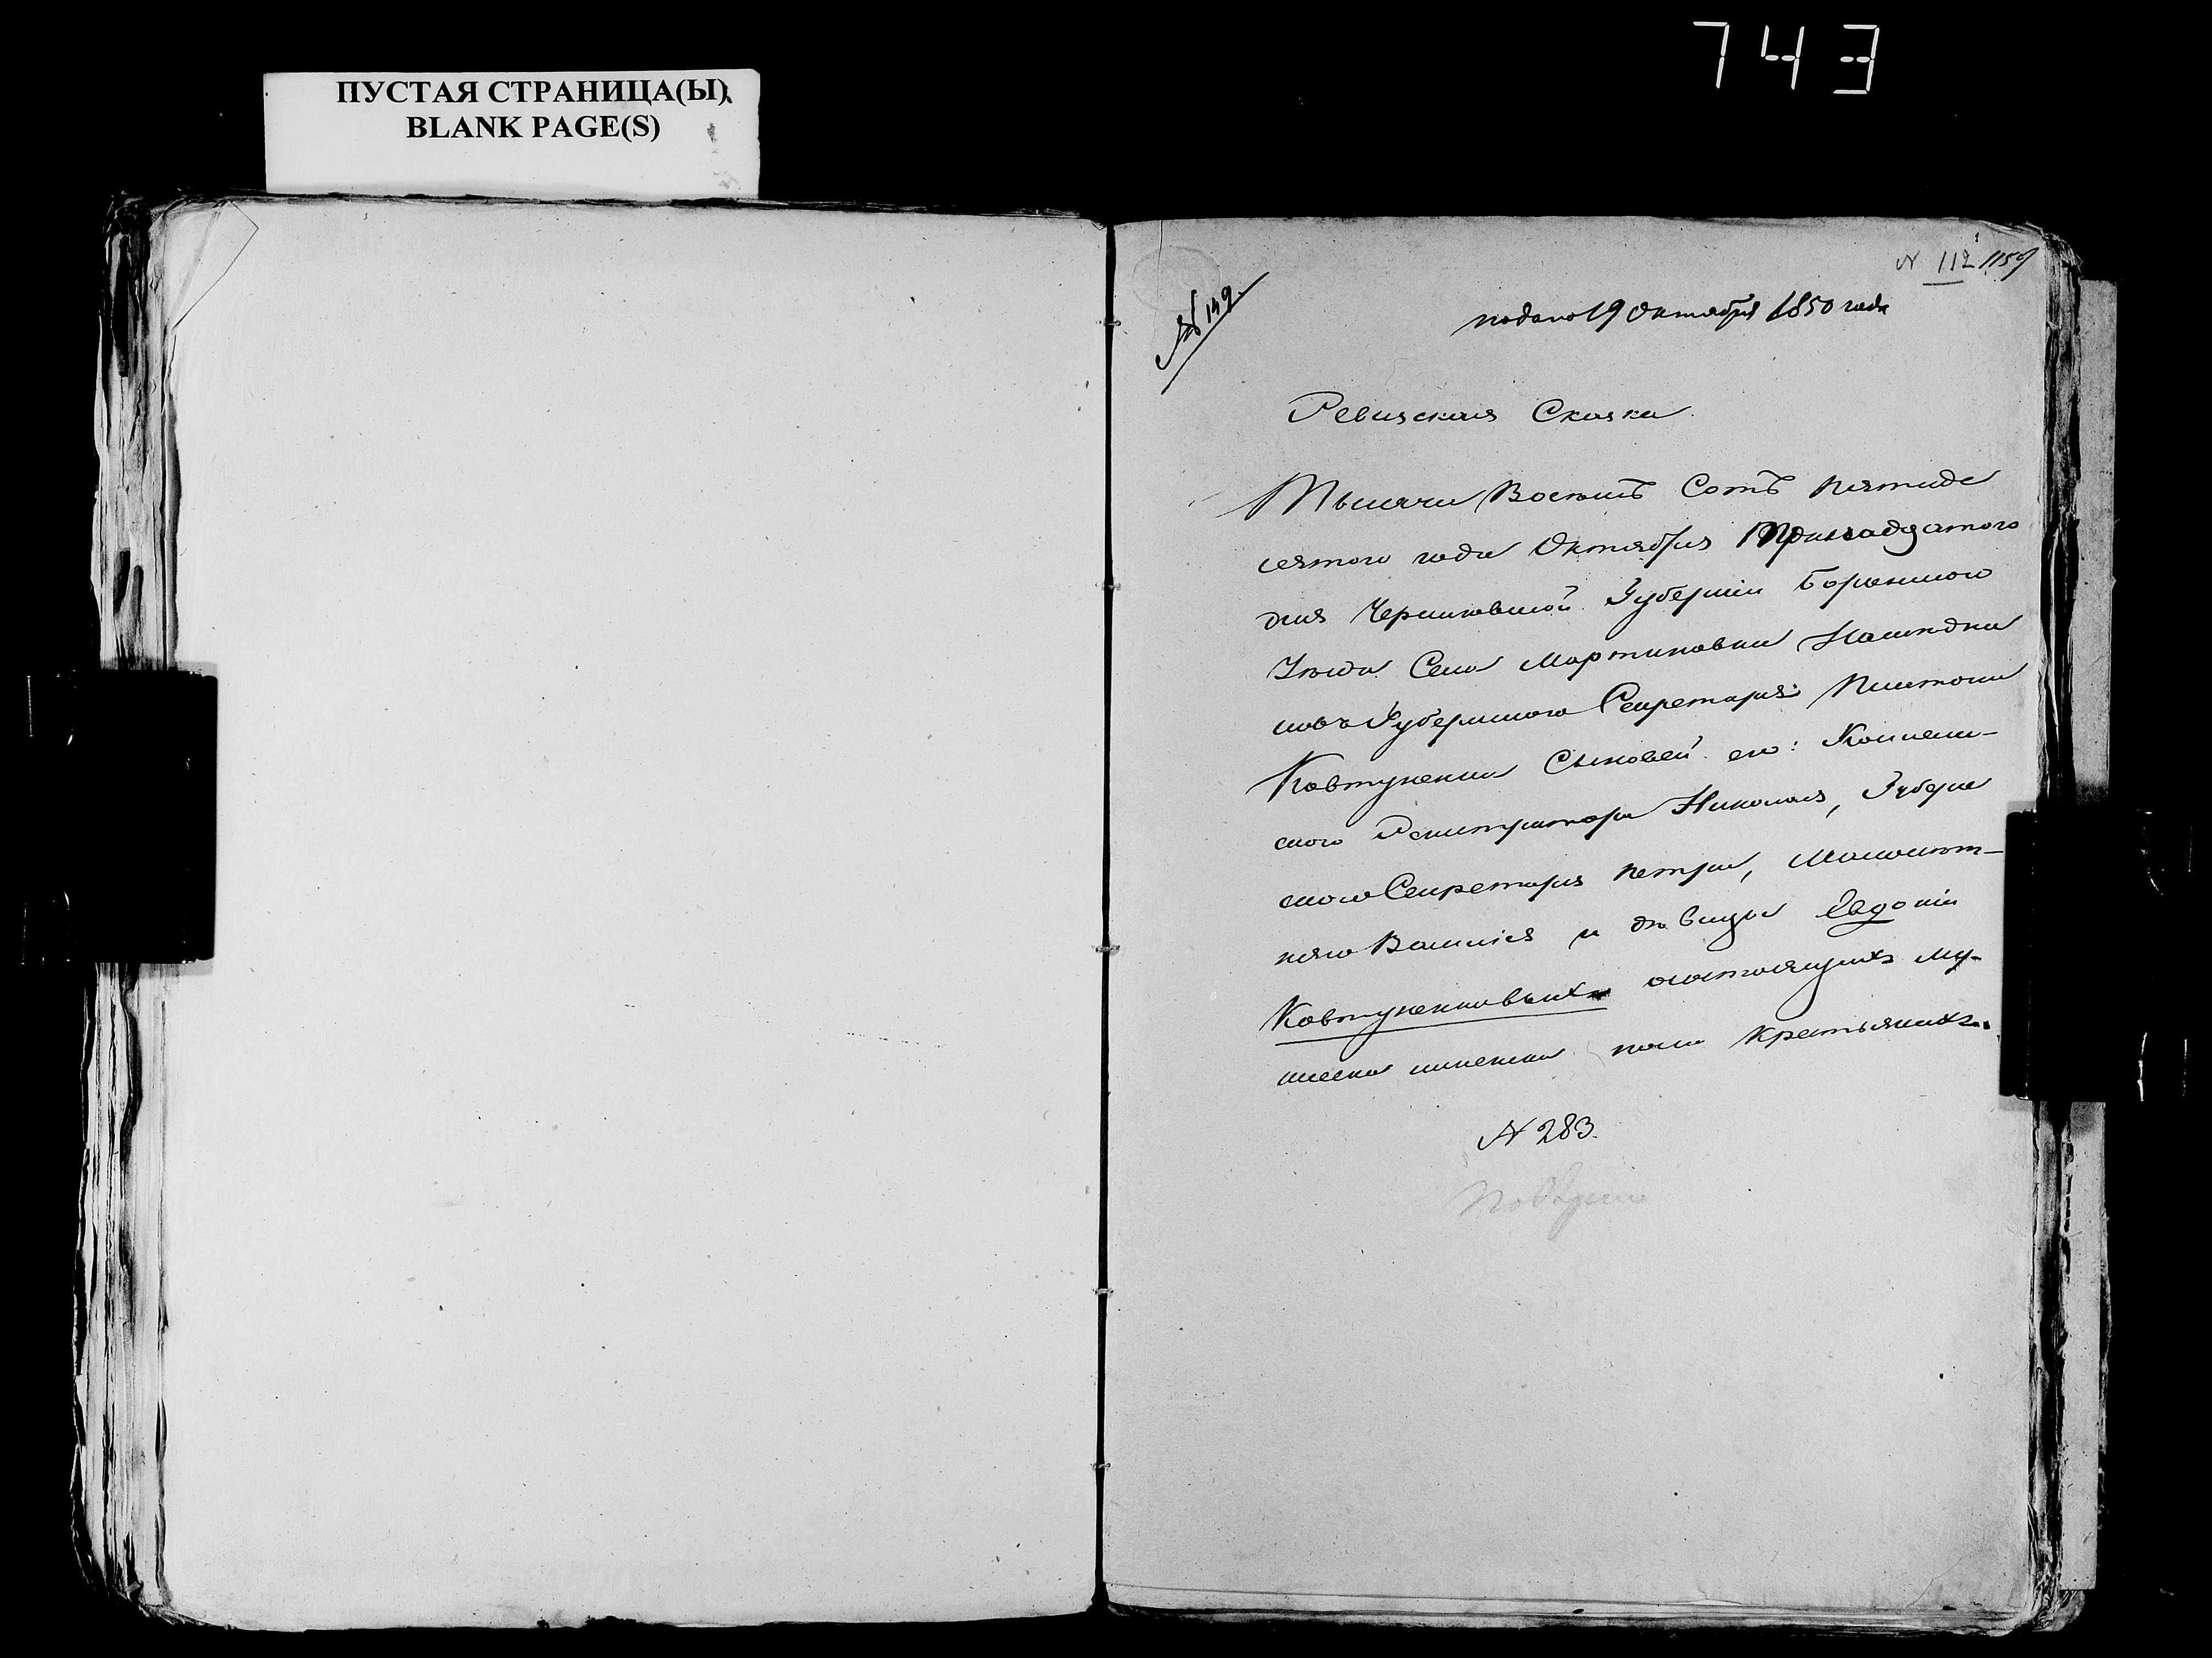 743
ПУСТАЯ СТРАНИЦА(Ы)
BLANK PAGE(S)
N 112 1159
№ 149.
подано 19 Октября 1850 года
Ревизская Сказка.
Тысяча Восемь Сотъ пятиде
сятого года Октября Тринадцатого
дня Черниговской Губерніи Борзенского
Уезда Села Мартиновки Наследни
ковъ Губернского Секретаря Платона
Ковтуненка Сыновей его: Коллеж-
ского Регистратора Николая, Губерн
ского Секретаря Петра, Малолет-
няго Василія и девицы Евдокіи
Ковтуненковыхъ о состоящихъ му-
жеска и женска пола крестьянахъ.
N 283.